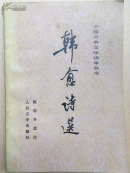 中国古典文学读本丛书
韩愈诗选
人民文学出版社